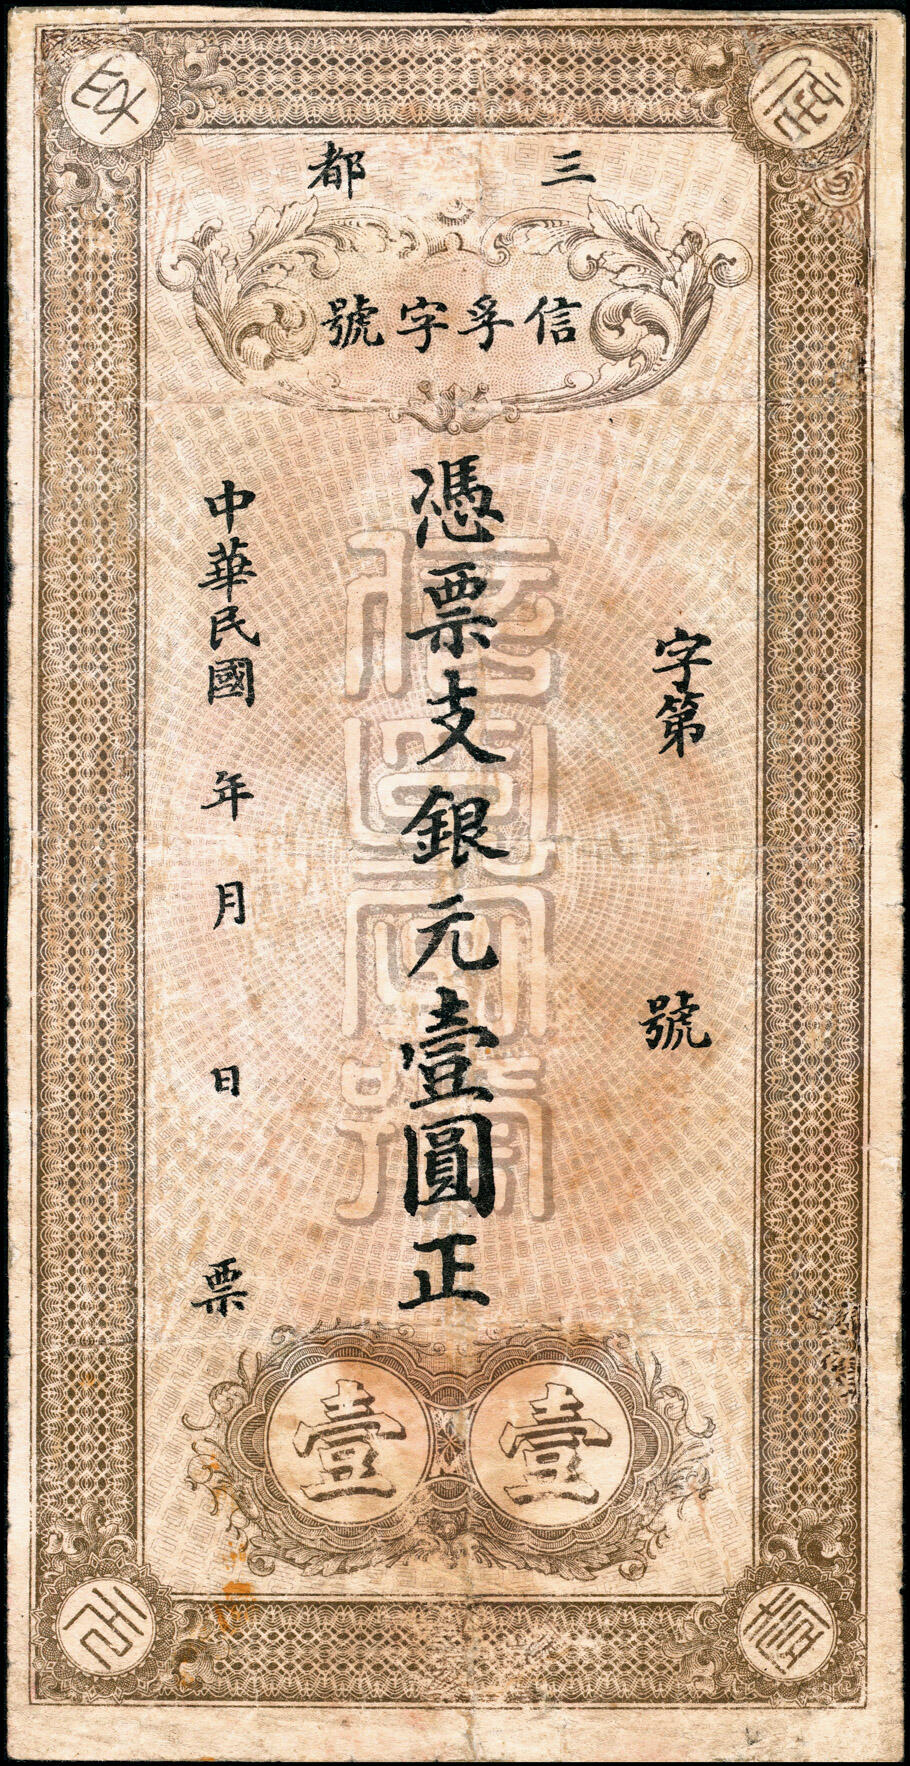 信
孚
三都
信孚字號
字第 號
憑票支銀元壹圓正
中華民國 年 月 日 票
壹 壹
壹
元